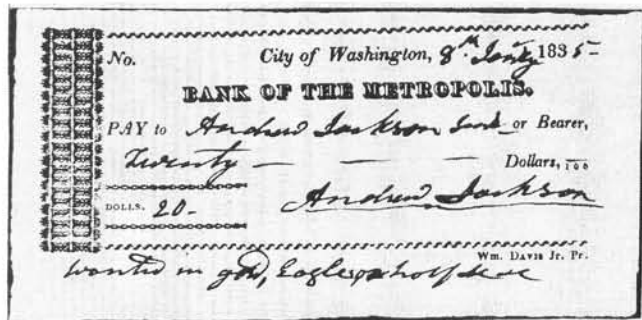 No. City of Washington, 8th Jany 1835
BANK OF THE METROPOLIS.
PAY to Andrew Jackson Junr or Bearer,
Twenty — — — Dollars, 100
DOLLS. 20- Andrew Jackson
Wm. DAVIS Jr. Pr.
wanted in gold, Eagles half